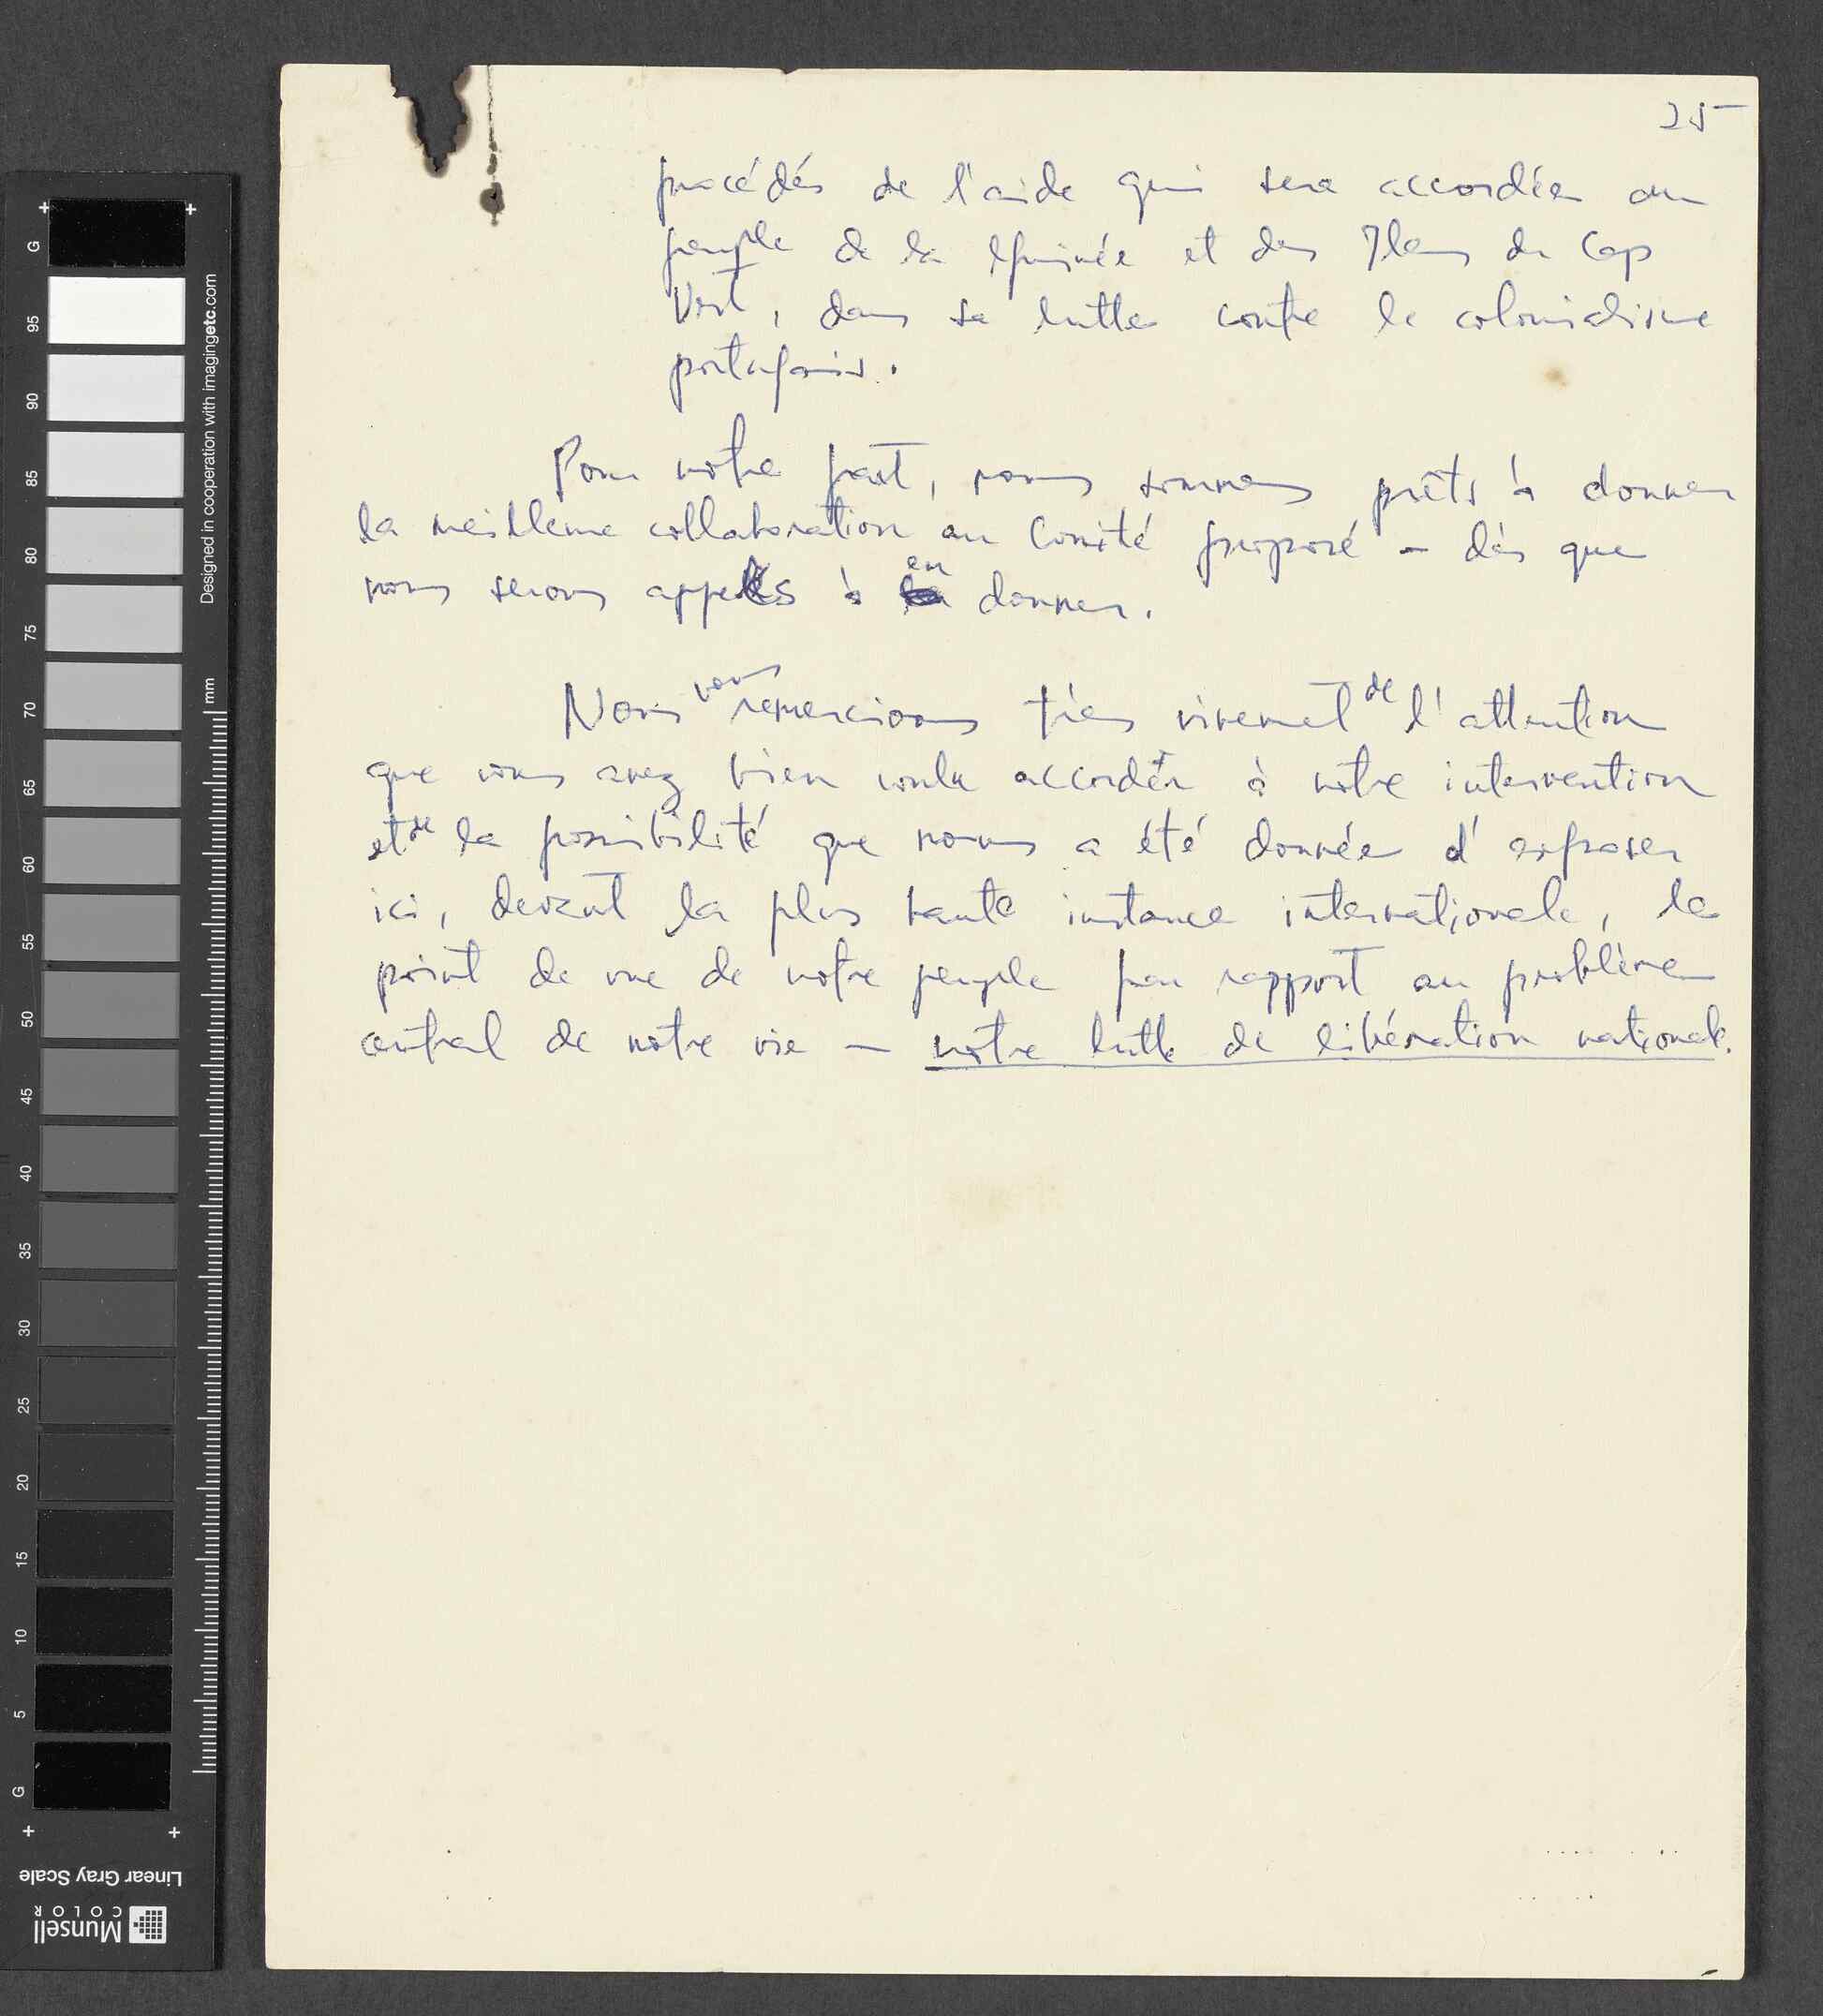 25
procédés de l'aide qui sera accordée au
peuple de la Guinée et des Iles du Cap
Vert, dans sa lutte contre le colonialisme
portugais.
Pour notre part, nous sommes prêts à donner
la meilleure collaboration au Comité proposé – dès que
nous serons appelés à en donner.
Nous vous remercions très vivement de l'attention
que vous avez bien voulu accorder à notre intervention
et de la possibilité que nous a été donnée d'exposer
ici, devant la plus haute instance internationale, le
point de vue de notre peuple par rapport au problème
central de notre vie — notre lutte de libération nationale.
G
95
90
85
80
75
70
65
60
55
50
45
40
35
30
25
20
15
10
5
G
mm
Designed in cooperation with imagingetc.com
Linear Gray Scale
Munsell
COLOR